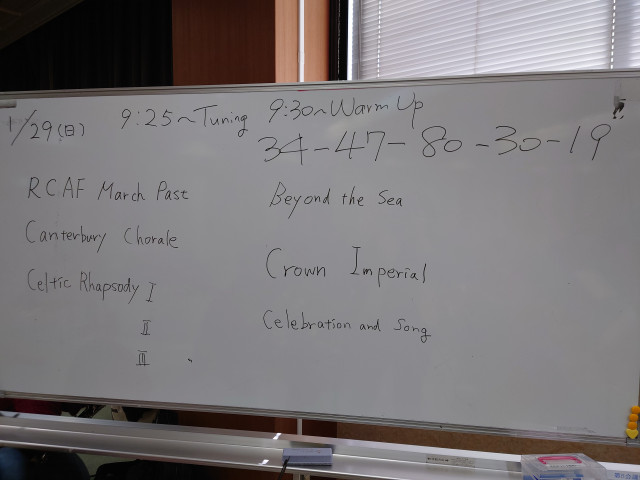 1/29(日) 9:25~Tuning 9:30~Warm Up
34-47-80-30-19
RCAF March Past
Canterbury Chorale
Celtic Rhapsody I
II
III
Beyond the Sea
Crown Imperial
Celebration and Song